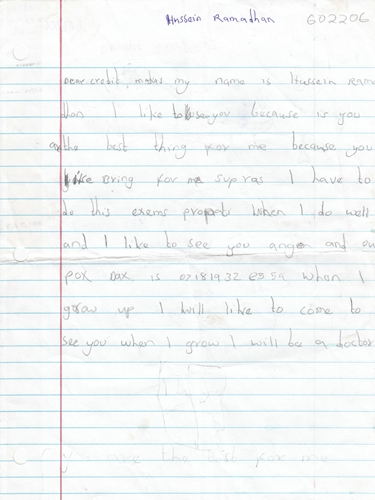 Hussein Ramadhan 602206
Dear credit, mdas my name is Hussein Rama
dan I like to see you because is you
the best thing for me because you
like Bring for me supras I have to
do this exems propets When I do well
and I like to see you angen and on
POX BAX is 0718193 2 When I
grow up I will like to come to
see you when I grow I will be a doctor
you are the for me